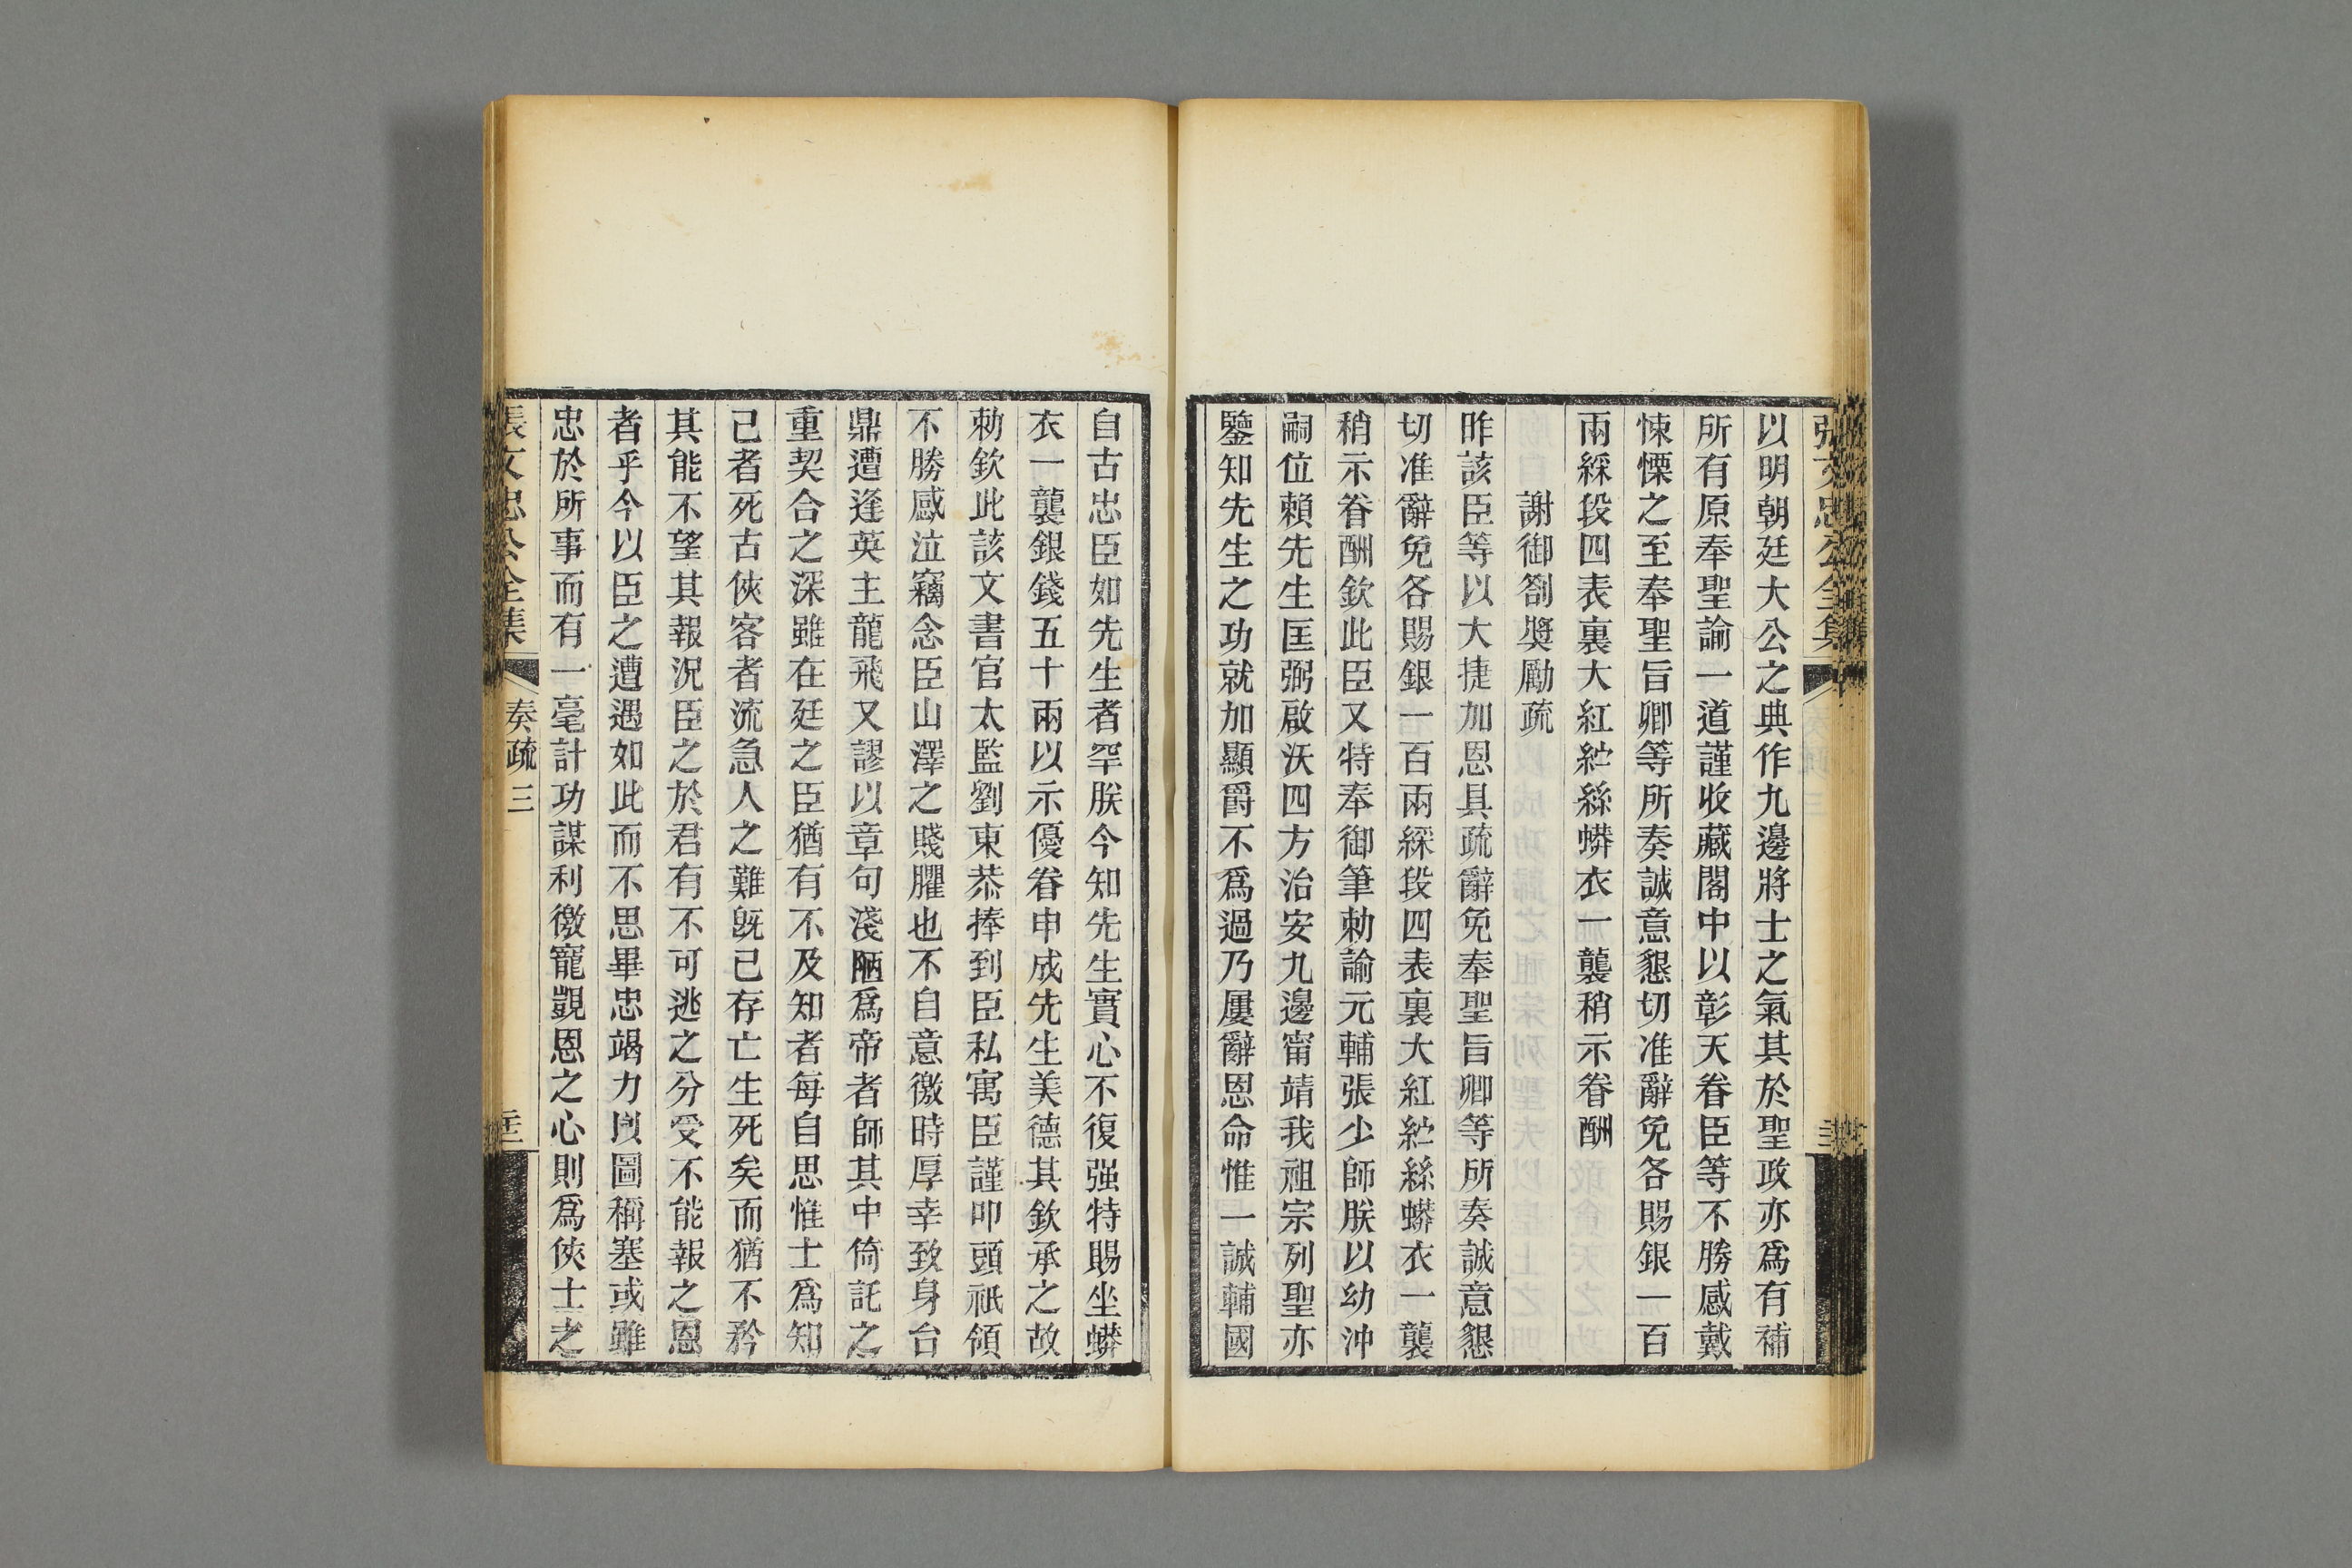 張文忠公全集
以明朝廷大公之典作九邊將士之氣其於聖政亦爲有補
所有原奉聖諭一道謹收藏閣中以彰天眷臣等不勝感戴
悚慄之至奉聖旨卿等所奏誠意懇切准辭免各賜銀一百
兩綵段四表裏大紅紵絲蟒衣一襲稍示眷酬
謝御劄奬勵疏
昨該臣等以大捷加恩具疏辭免奉聖旨卿等所奏誠意懇
切准辭免各賜銀一百兩綵段四表裏大紅紵絲蟒衣一襲
稍示眷酬欽此臣又特奉御筆勅諭元輔張少師朕以幼沖
嗣位賴先生匡弼啟沃四方治安九邊甯靖我祖宗列聖亦
鑒知先生之功就加顯爵不爲過乃屢辭恩命惟一誠輔國
自古忠臣如先生者罕朕今知先生實心不復强特賜坐蟒
衣一襲銀錢五十兩以示優眷申成先生美德其欽承之故
勅欽此該文書官太監劉東恭捧到臣私寓臣謹叩頭祇領
不勝感泣竊念臣山澤之賤臞也不自意徼時厚幸致身台
鼎遭逢英主龍飛又謬以章句淺陋爲帝者師其中倚託之
重契合之深雖在廷之臣猶有不及知者每自思惟士爲知
己者死古俠客者流急人之難旣已存亡生死矣而猶不矜
其能不望其報況臣之於君有不可逃之分受不能報之恩
者乎今以臣之遭遇如此而不思畢忠竭力以圖稱塞或雖
忠於所事而有一毫計功謀利徼寵覬恩之心則爲俠士之
張文忠公全集
奏疏三